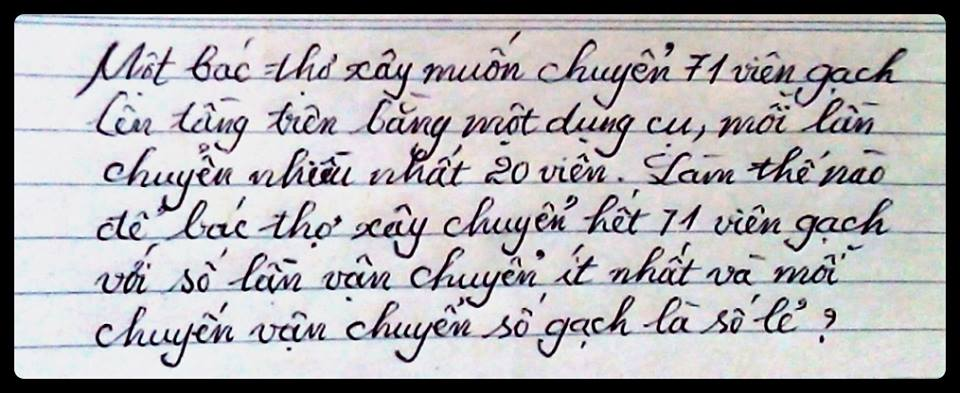 Một bác thợ xây muốn chuyển 71 viên gạch
lên tầng trên bằng một dụng cụ, mỗi lần
chuyển nhiều nhất 20 viên. Làm thế nào
để bác thợ xây chuyển hết 71 viên gạch
với số lần vận chuyển ít nhất và mỗi
chuyến vận chuyển số gạch là số lẻ ?